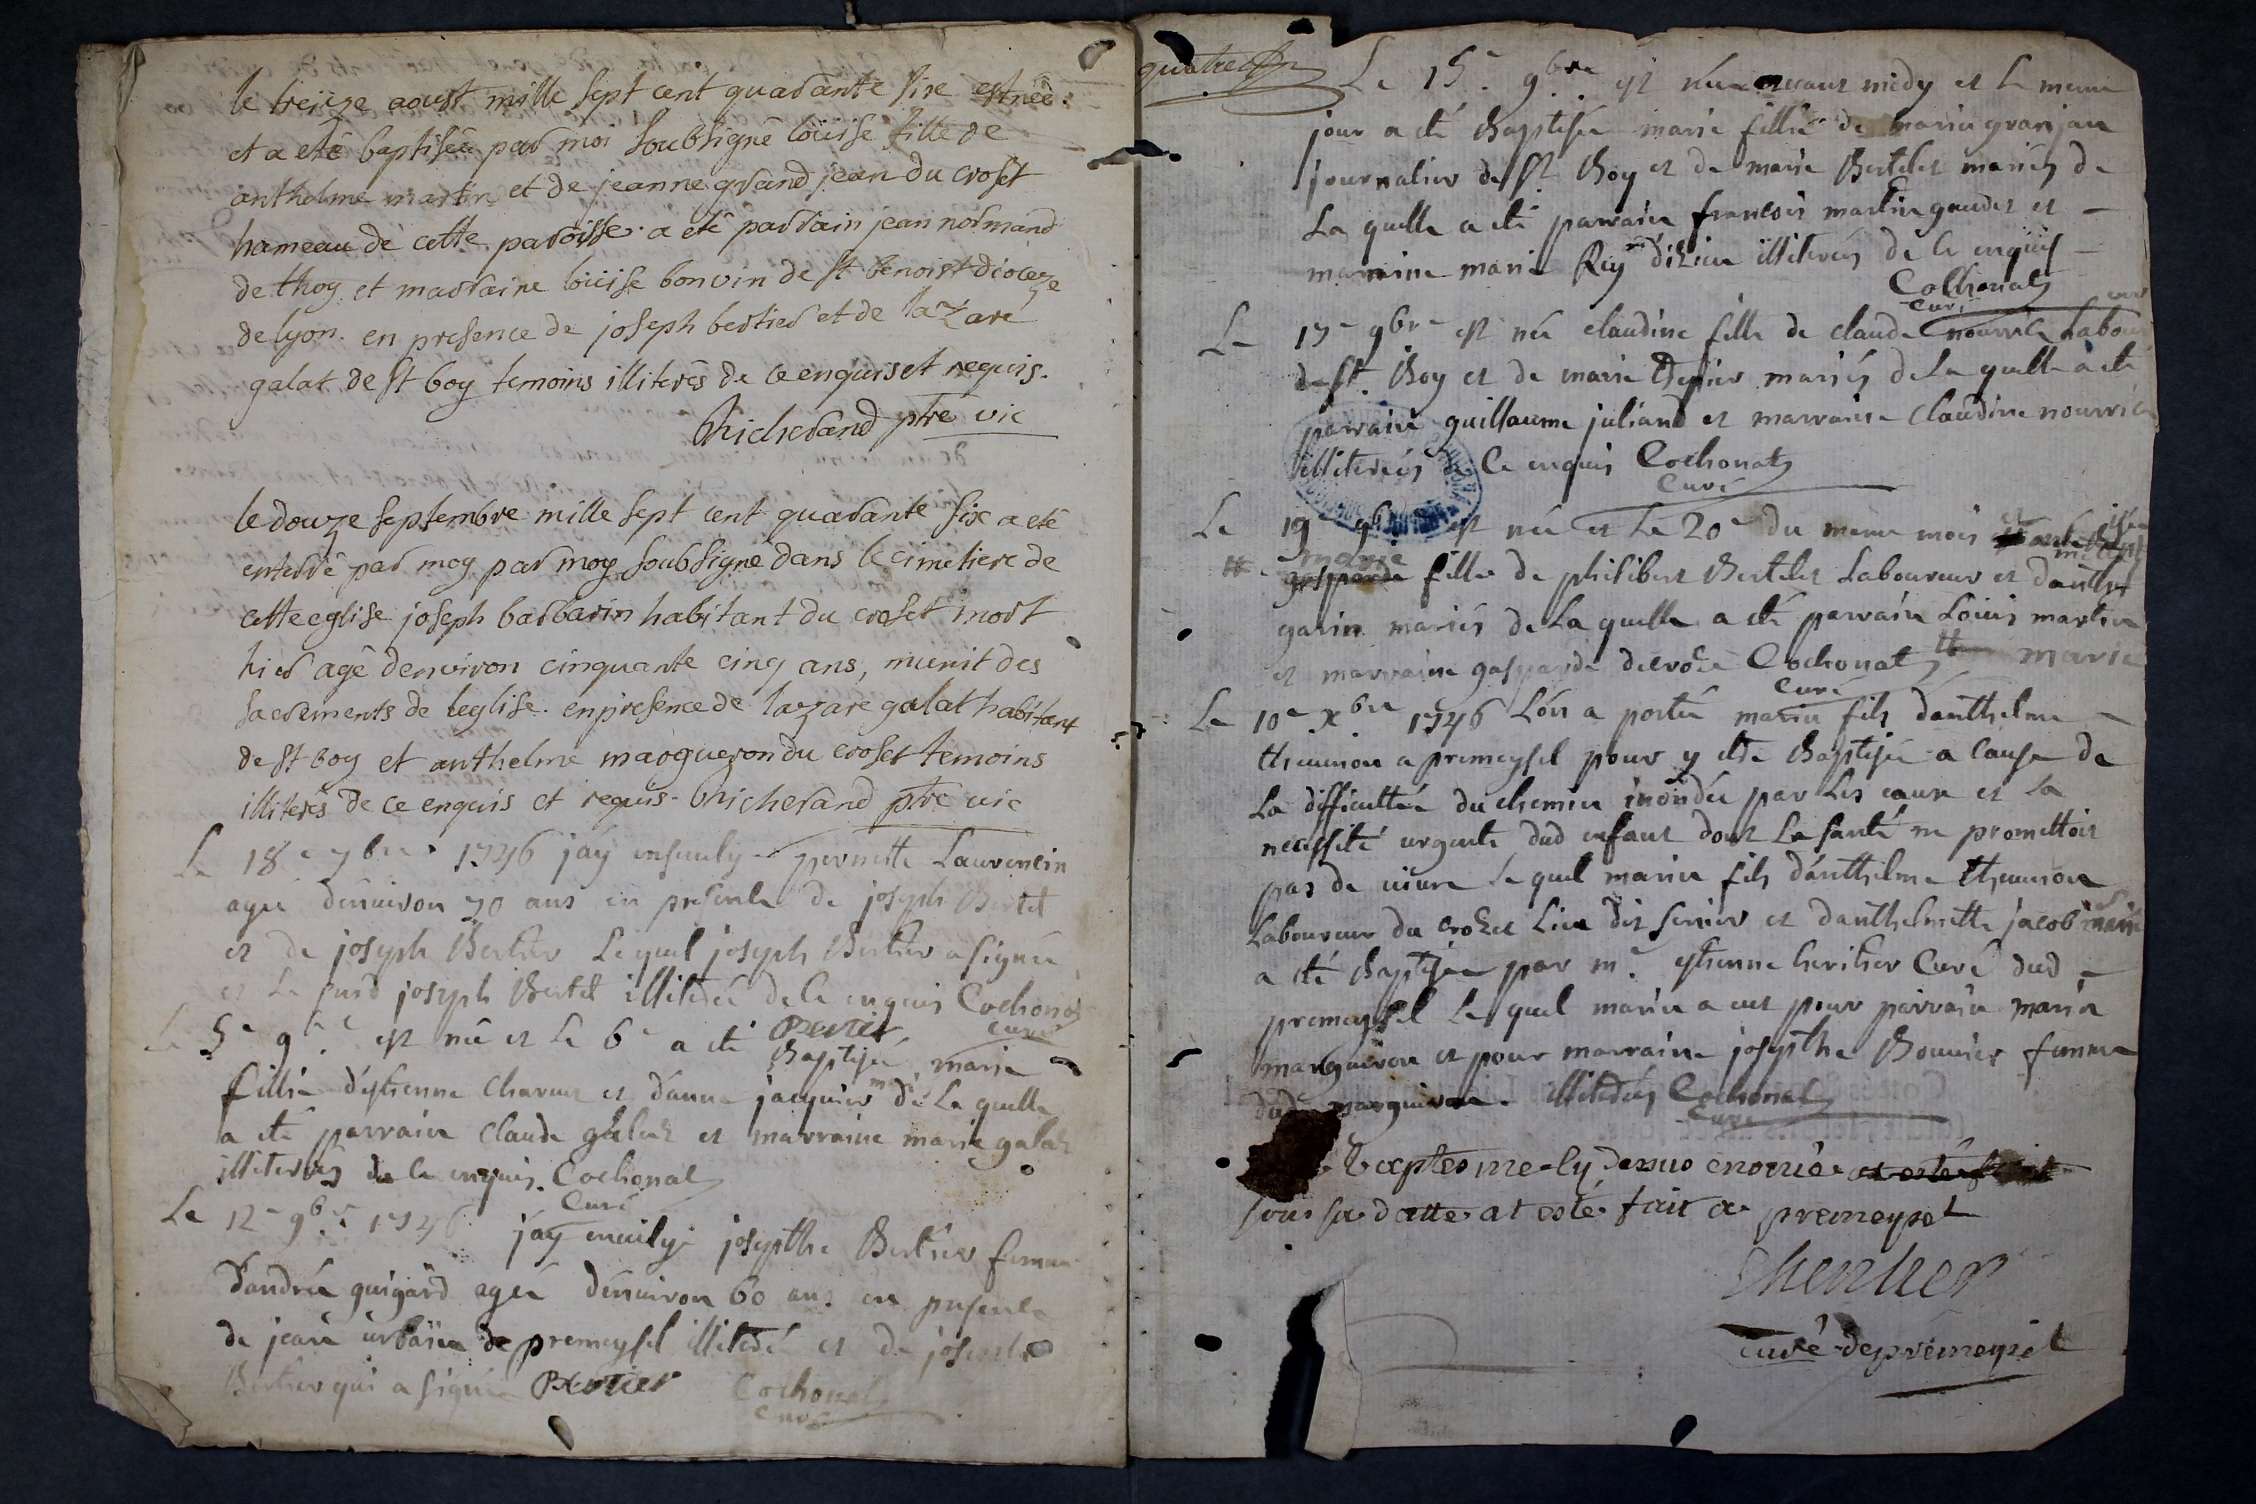 le treize aoust mille sept cent quarante sixe est née
et a eté baptiseé par moi soubsigné loüise fille de
anthelme martin et de jeanne grand jean du croset
hameau de cette paroisse. a eté parrain jean normand
de thoy et marraine loüise bonvin de st benoist dioceze
de lyon. en presence de joseph bertier et de lazare
galat de st boy temoins illiterés de ce enquis et requis.
Bricherand ptre vic
le douze septembre mille sept cent quarante six a eté
enterré par moy par moy soubsigné dans le cimetiere de
cette eglise joseph barbarin habitant du croset mort
hier agé denviron cinquante cinq ans, munit des
sacrements de leglise. en presence de lazare galat habitant
de st boy et anthelme margueron du croset temoins
illiterés de ce enquis et requis. bricherand ptre vic
Le 18e 7bre 1746 jáy ensevely pernette Laurencin
agée dénviron 70 ans en presence de joseph Bertet
et de joseph Bertier Lequel joseph Bertier a signée
et Le susd joseph Bertet illiteré de ce enquis Cochonat
curé
Le 5e 9bre est née et Le 6e a eté Bertier
Baptiseé marie
fillie d'estienne Charvet et dánne jacquier mariés de La quelle
a eté parrain Claude galat et marraine marie galat
illiterés de ce enquis. Cochonat
Curé
Le 12e 9bre 1746 jáy ensevely josepthe Bertier femme
dándréa guigard agée dénviron 60 ans en presence
de jean urbain de premeysel illiteré et de joseph
Bertier qui a signée Bertier Cochonat
curé
quatre
Le 15e 9bre est née avant midy et Le meme
jour a eté Baptisée marie fillie de marin granjan
journalier de St Boy et de marie Bertelet mariés de
La quelle a eté parrain francois martin gaudet et
marraine marie Rey dizieu illiterés de ce enquis
Cochonat
Curé
Le 17e 9bre est née claudine fille de claude nourrice Labour
eur
de St Boy et de marie Tepier mariés de La quelle a eté
parrain guillaume juliand et marraine Claudine nourrice
illiterés de Ce enquis Cochonat
Curé
Le 19e 9bre est née et Le 20e du meme mois
marie
gasparde fille de philibert Bertelet Laboureur et danth
garin mariés de La quelle a eté parrain Loüis martin
et marraine gasparde Cochonat marie
Curé
Le 10e xbre 1746 Lón a porteé marin fils dánthelme
theunon a premeysel pour y etre Baptisée a Cause de
La difficultée du chemin inondée par Les eaux et La
necessité urgente dud enfant dont La santé ne promettoit
pas de vivre Le quel marin fils dánthelme theunon
Laboureur du Crozet Lieu dit serrier et danthelmette jacob mariés
a eté Baptisée par mre estienne heritier Curé dud
premeysel Le quel marin a eut pour parrain marin
marguiron et pour marraine josepthe Bouvier femme
dud marguiron illiterés Cochonat
Curé
Le baptesme cy dessus enoncé
sous sa datte at esté fait a premeyzel
Sheritier
curé de prémeyzel